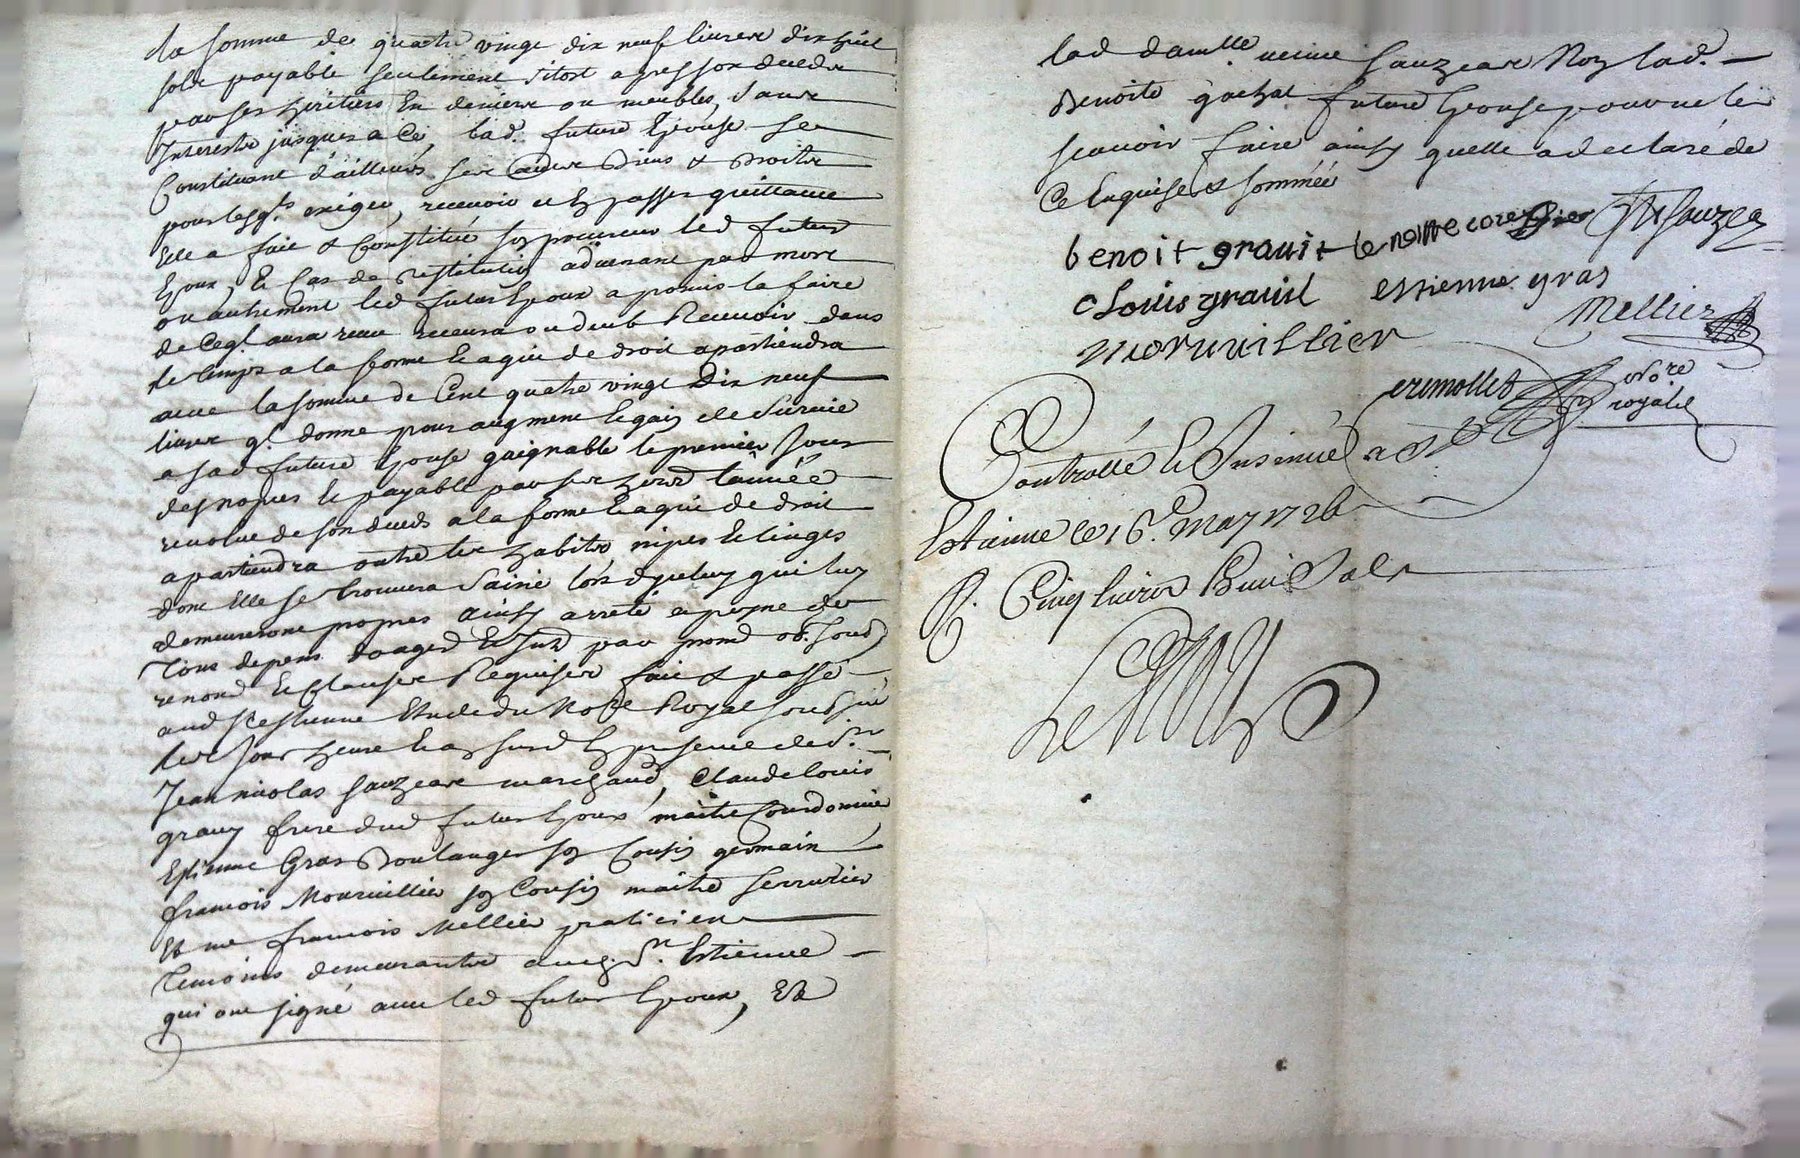 la somme de quatre vingt dix neuf livres dix huit
sols payable seulement sitost apres son deceds
par ses heritiers En deniers ou meubles, sans
Interests jusques a Ce, lad. future Epouse se
Constituant d'ailleurs ses autres Biens & Droits
pour lesqls exiger, recevoir et En passer quittance
Elle a fait & Constitué son procureur led. futur
Epoux, En Cas de restitution advenant par mort
ou autrement led futur Epoux a promis la faire
de Ce ql aura receu recevra ou deub Recevoir dans
le temps a la forme Et a qui de droit apartiendra
avec la somme de Cent quatre vingt Dix neuf
livres ql donne pour augment Et gain de Survie
a sad future Epouse gaignable le premier Jour
des nopces Et payable par ses hoirs l'année
revolue de son deceds a la forme Et a qui de droit
apartiendra outre les habits nipes Et linges
dont Elle se trouvera Saisie lors d'yceluy qui luy
demeureront propres ainsy arreté a peyne de
Tous depens domages Et Intz par promes obs. Soub.
renond Et Clauses Requises fait & passé
aud St Estienne Etude du Nore Royal soubsigné
les Jour heure Et an susd En presence de Sr.
Jean nicolas sauzeas marchand, Claude louis
gravy frere dud futur Epoux maitre Cordonnier
Estienne Gras Boulanger son Cousin germain
françois Mourvillier son Cousin maitre serrurier
Et me françois Mellier praticien
Temoins demeurants aud. St. Estienne
qui ont signé avec led futur Epoux, Et
lad damlle. veuve sauzeas Non lad.
Benoite gachat future Epouse pour ne le
scavoir faire ainsy quelle a declaré de
Ce Enquise & sommée
benoit gravit sauzea
Louis gravit estienne gras
Mellier
morvuillier
crimollet nore
royal
Controllé Et Insinué a St
Estienne le 16e. May 1726
R. Cinq livres huit sols